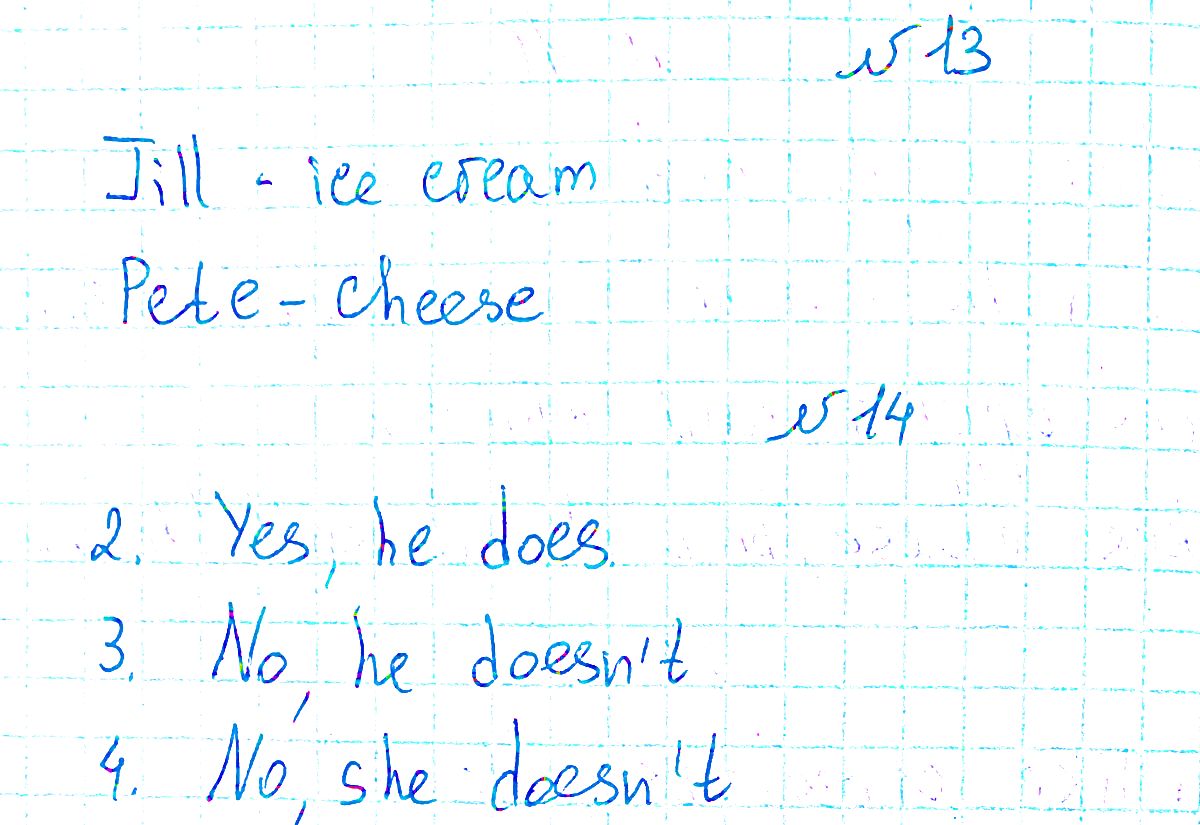 № 13
Jill - ice cream
Pete - cheese
№ 14
2. Yes, he does.
3. No, he doesn't
4. No, she doesn't